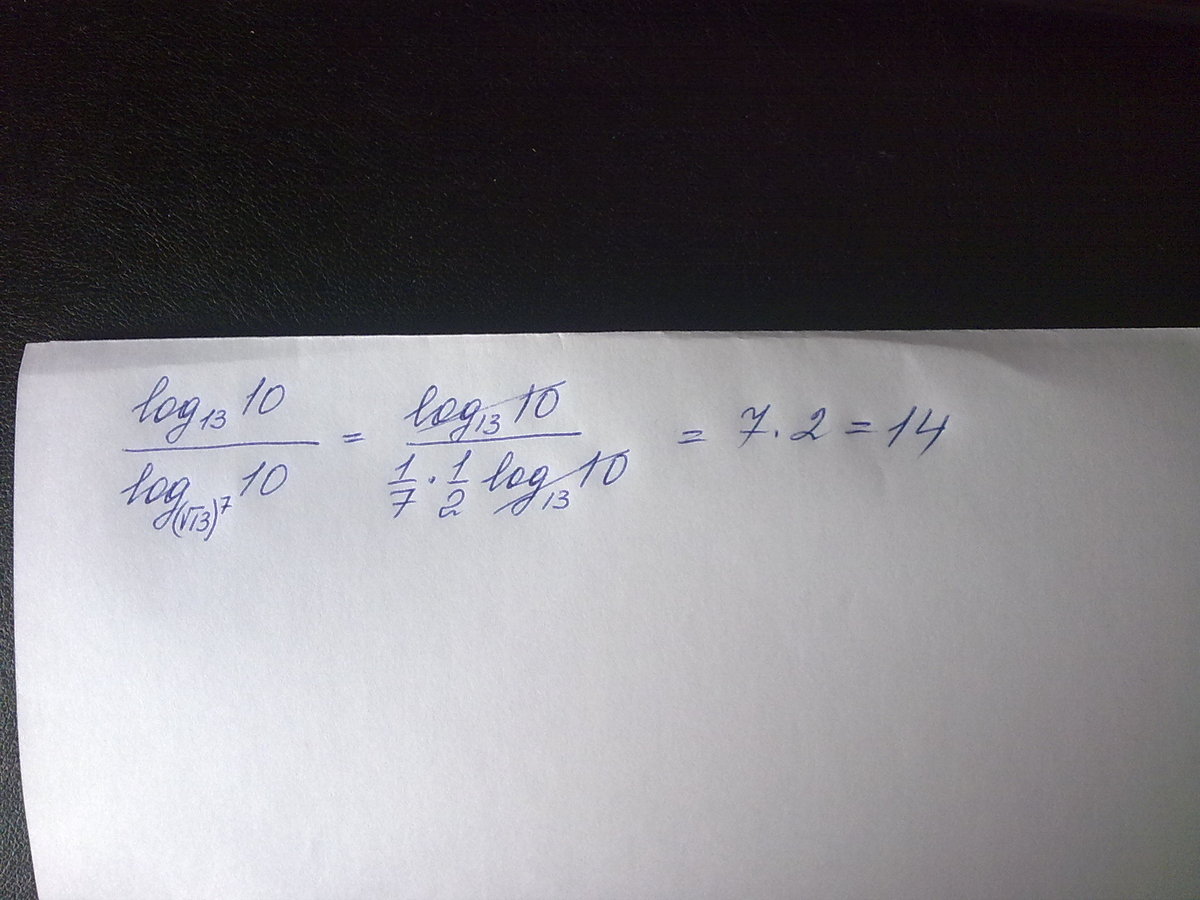 log₁₃ 10 / log₍√13₎⁷ 10 = log₁₃ 10 / (1/7 · 1/2 log₁₃ 10) = 7 · 2 = 14